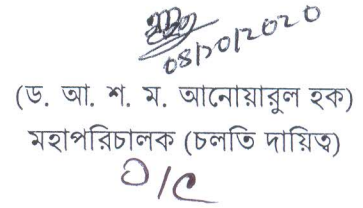 08/10/2020
(ড. আ. শ. ম. আনোয়ারুল হক)
মহাপরিচালক (চলতি দায়িত্ব)
O/C